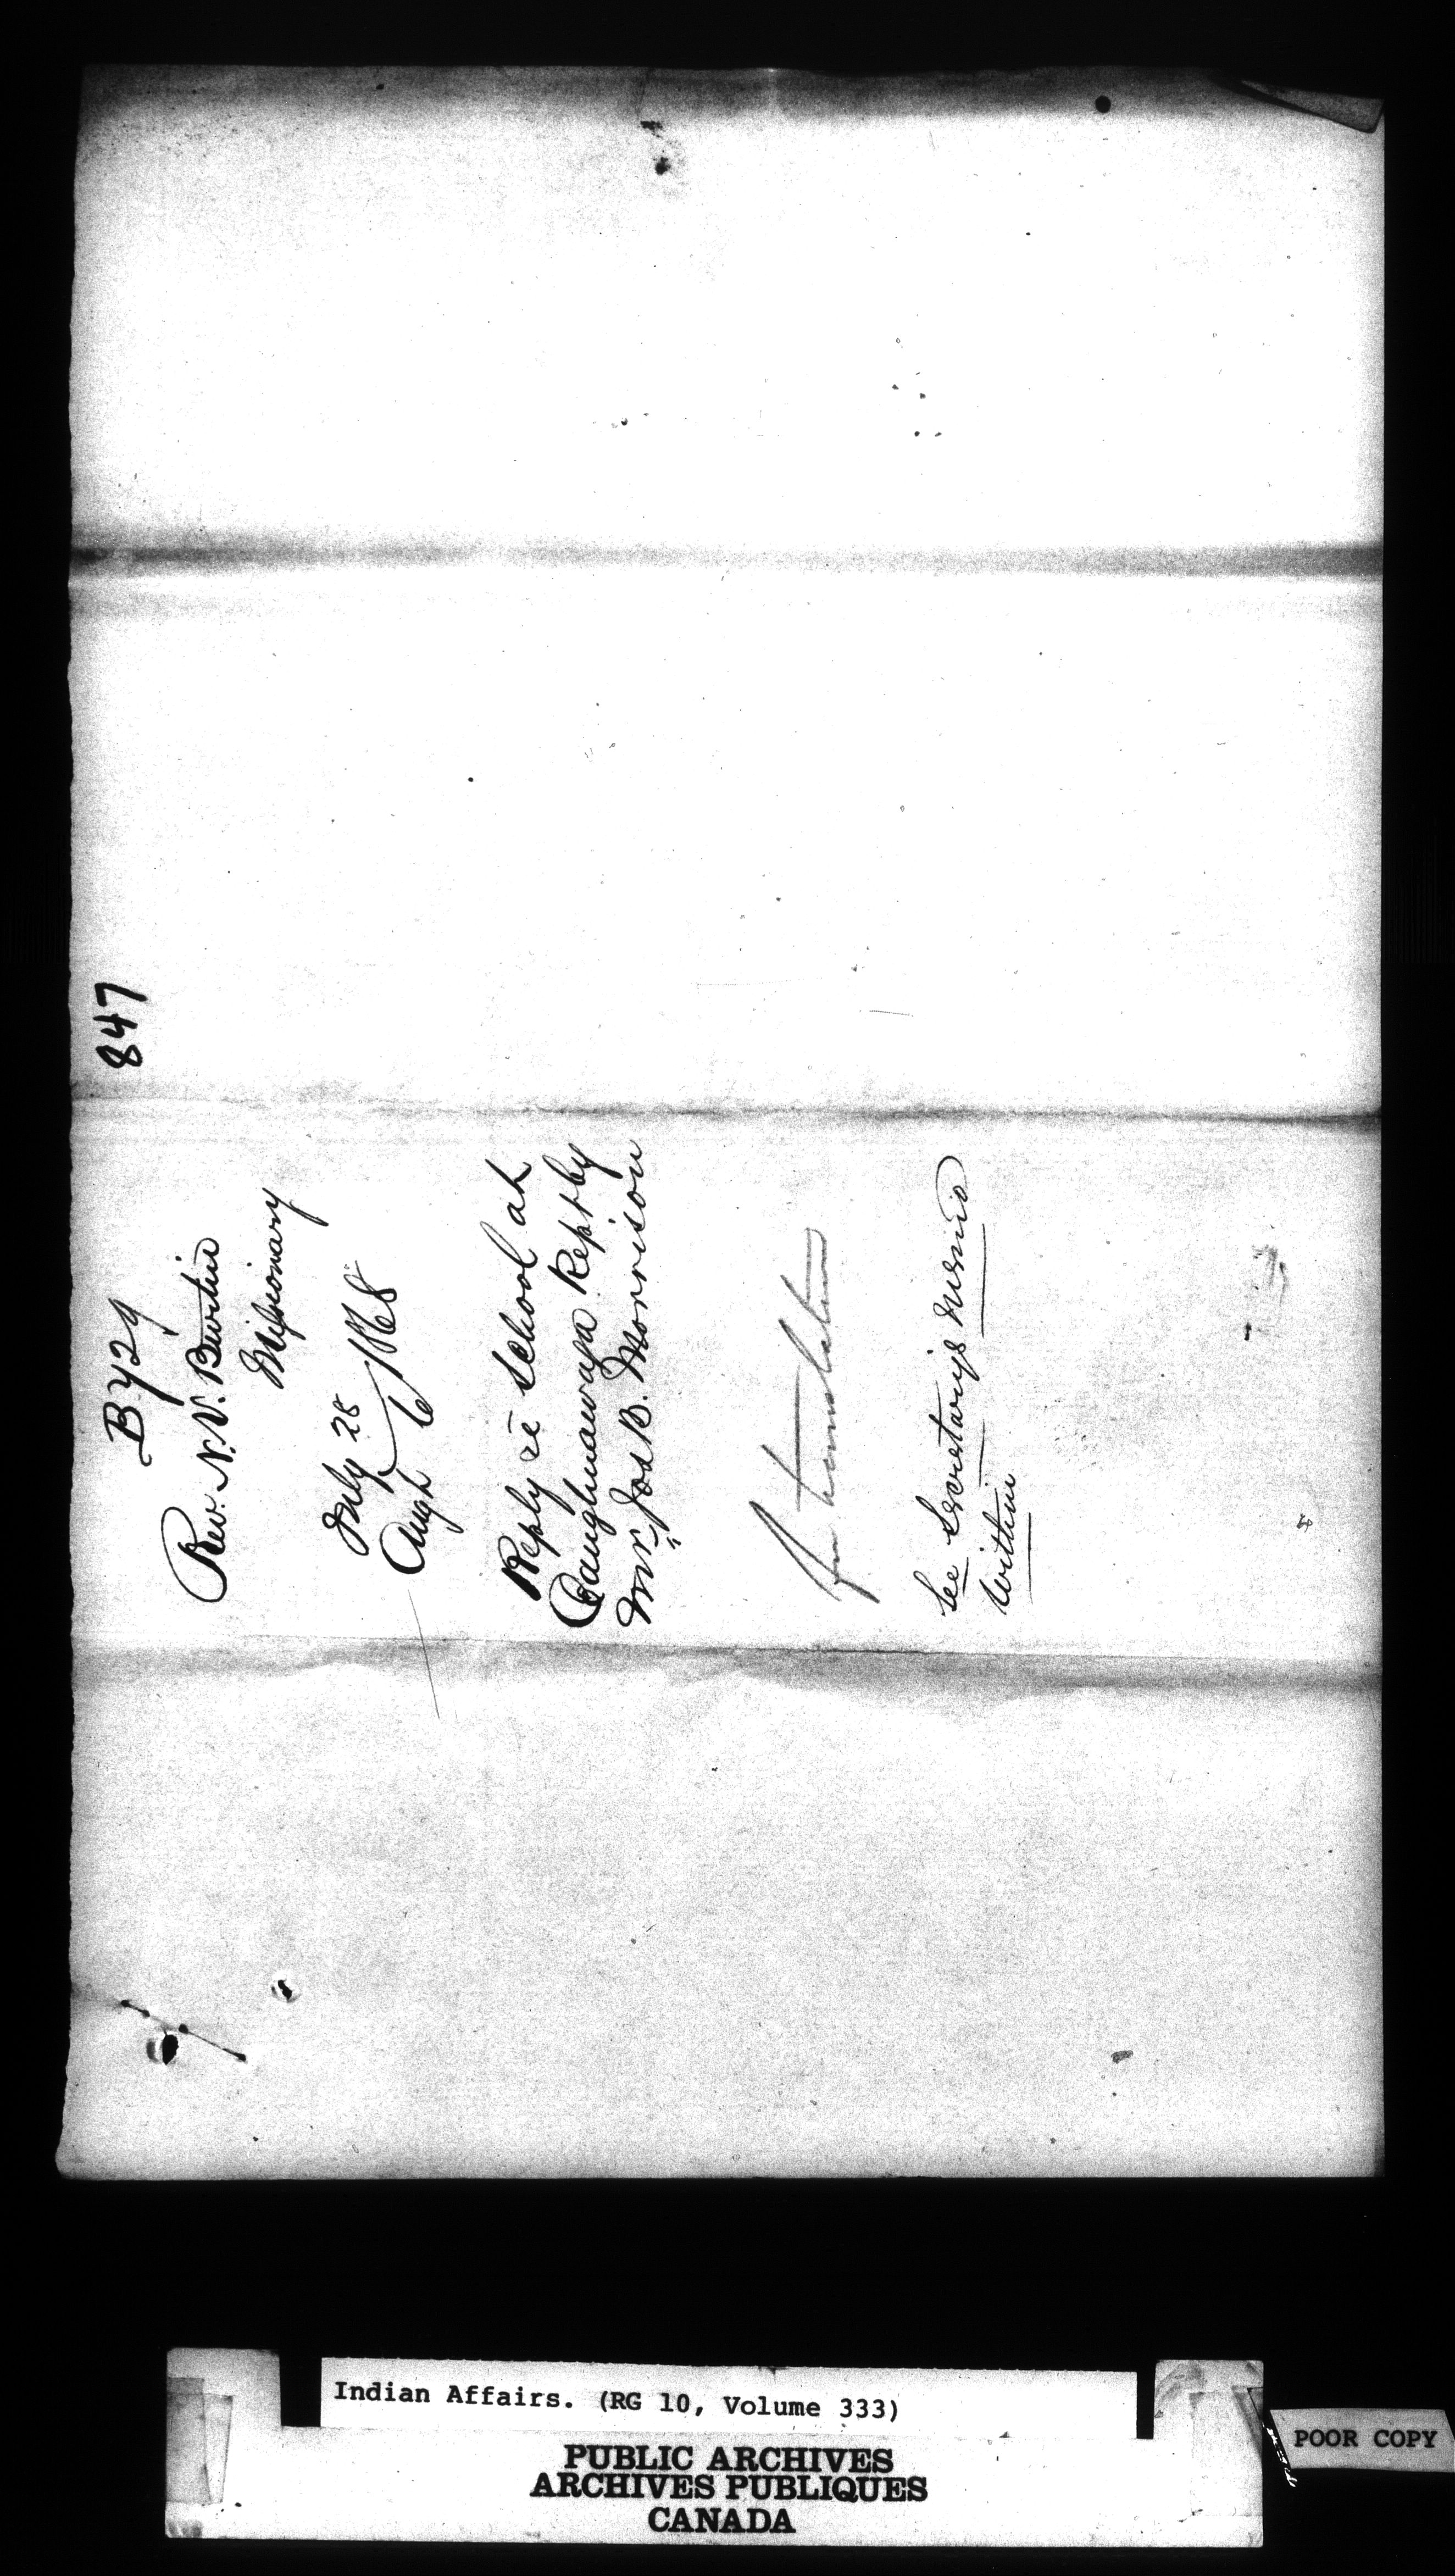 847
B 429
Rev. N. V. Burtin
Missionary
July 28
Augt 6 / 1868
Reply re School at
Caughnawaga Kept by
Mr Jos B. Morrison
for translation
See Secretary's memo
within
Indian Affairs. (RG 10, Volume 333)
PUBLIC ARCHIVES
ARCHIVES PUBLIQUES
CANADA
POOR COPY